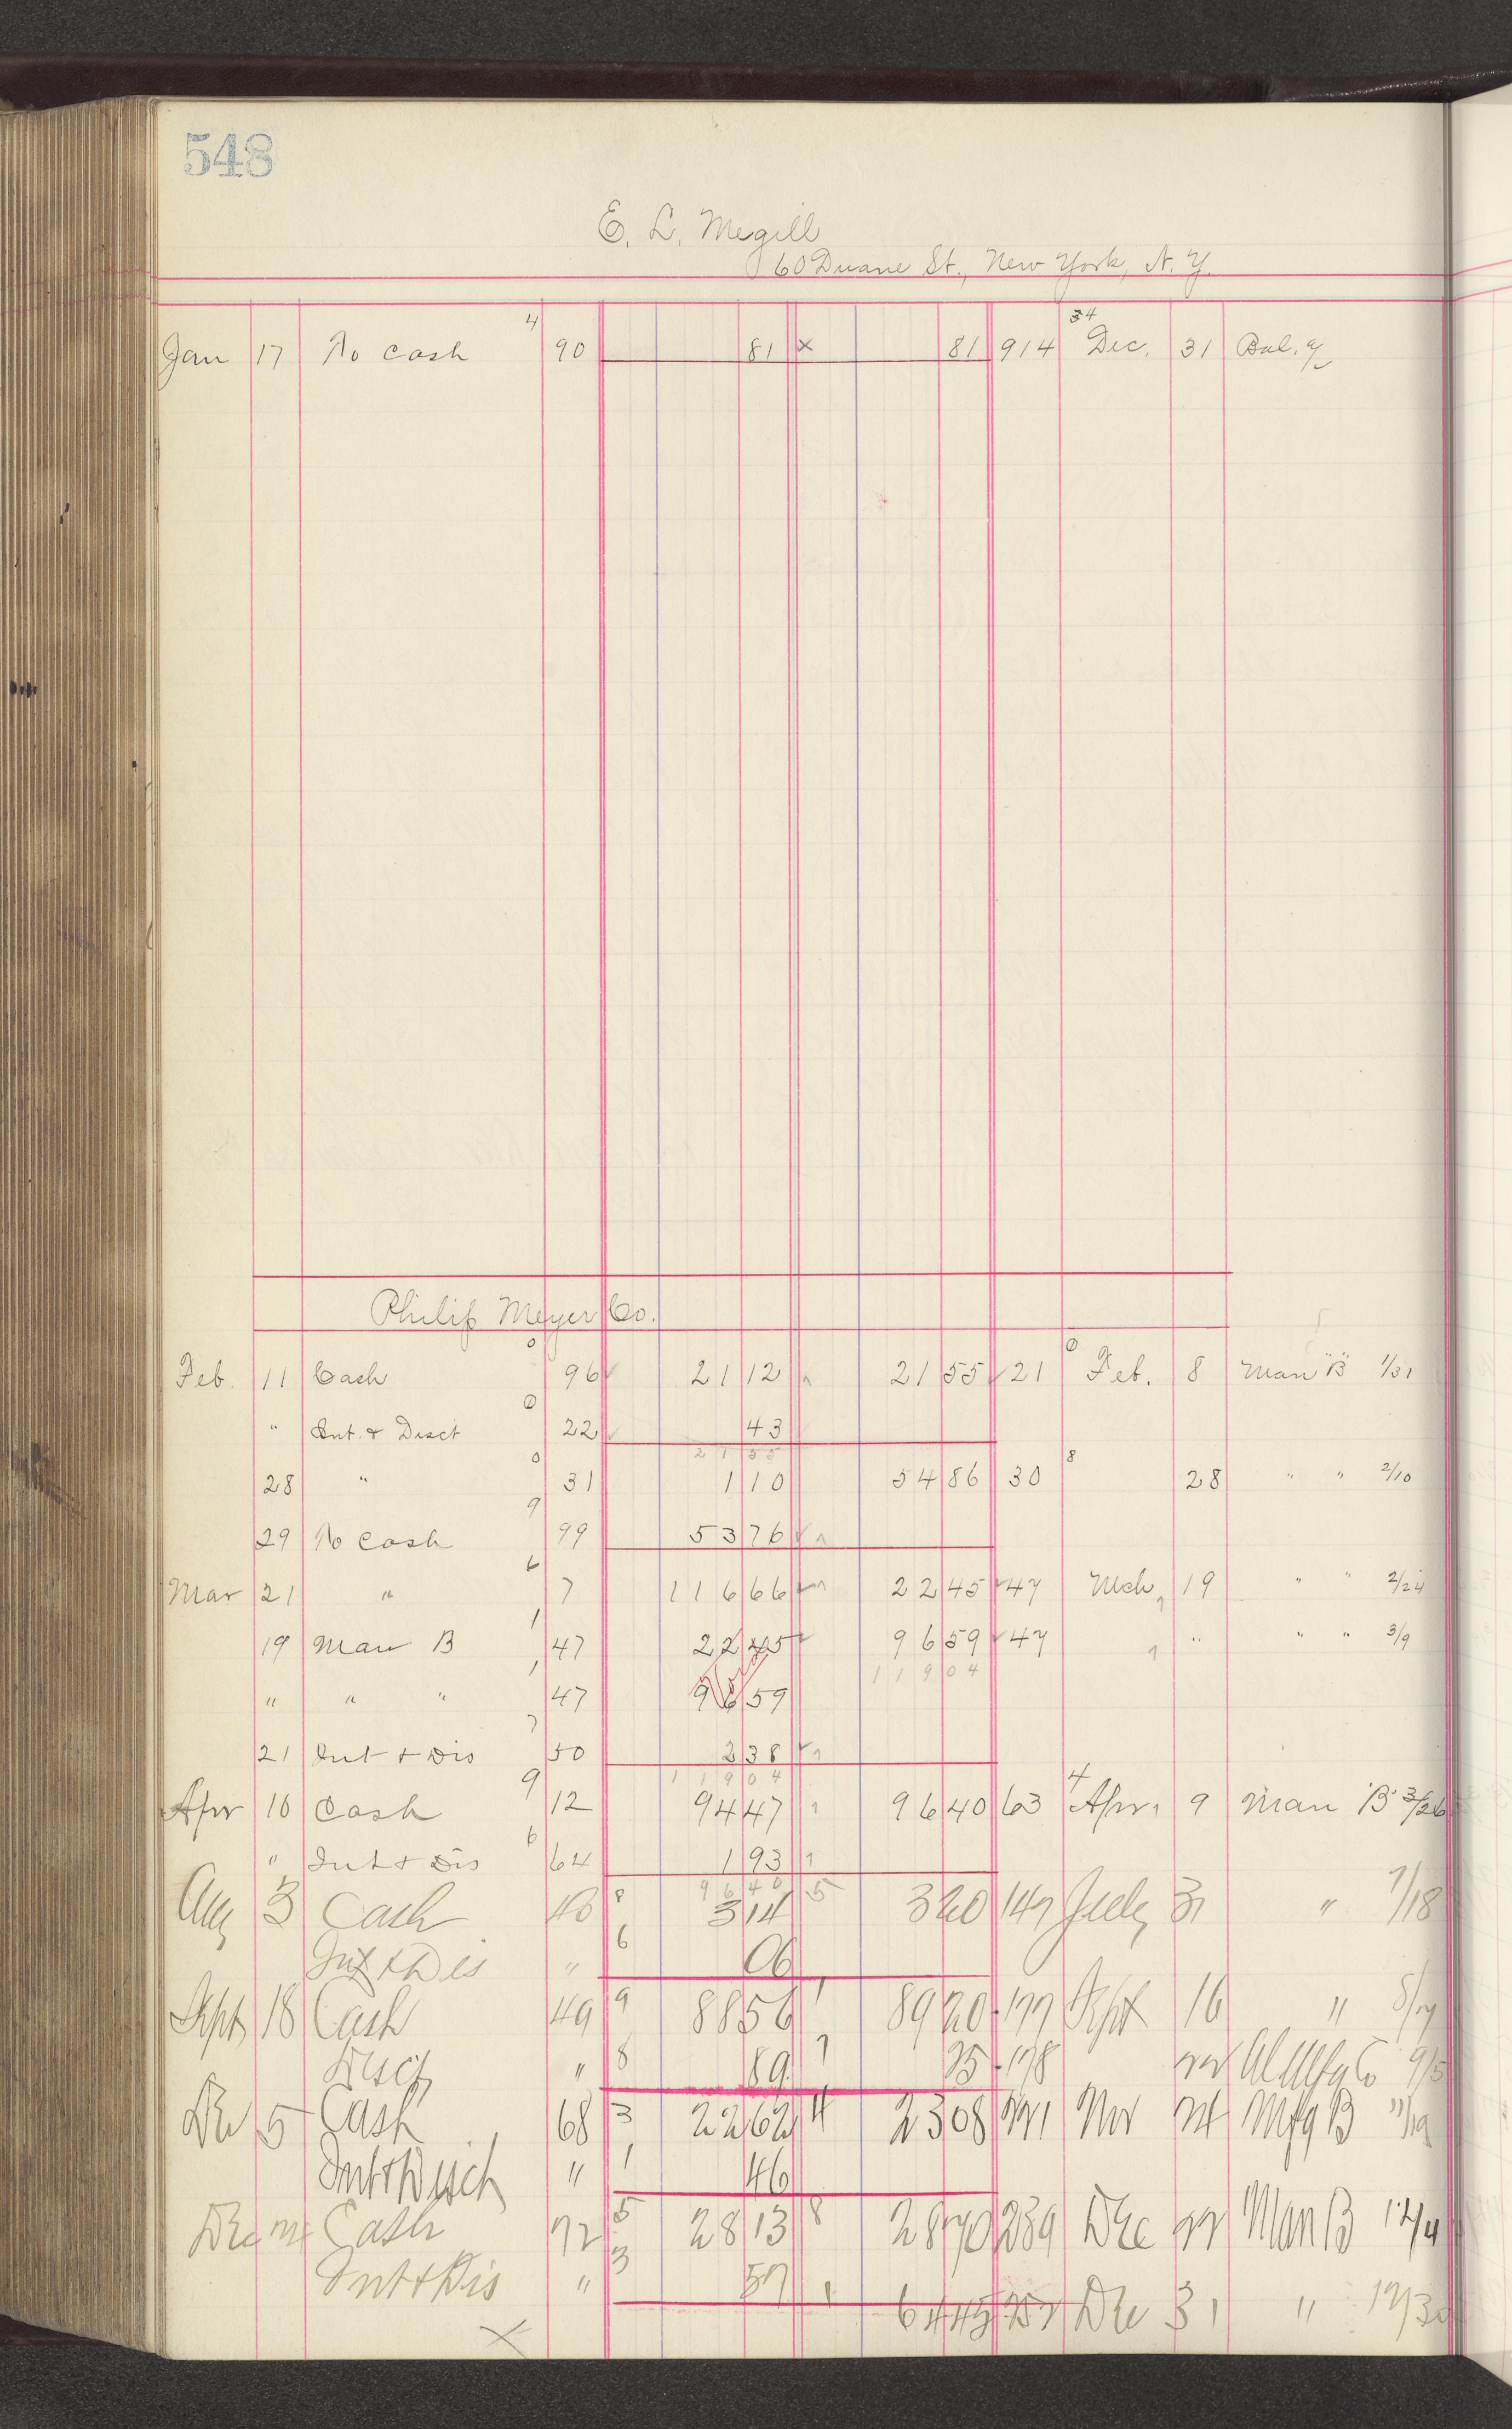 548
E. L. Megill
60 Duane St., New York, N. Y.
34
Jan 17 To Cash 4 90 81 x 81 914 Dec. 31 Bal.
Philip Meyer Co.
Feb. 11 Cash 0 96 21 12 21 55 21 0 Feb. 8 Man "B" 1/31
" Int. & Disct 0 22 43
21 55
28 " 0 31 1 10 54 86 30 8 28 " " 2/10
29 To Cash 9 99 53 76
Mar 21 " 6 7 116 66 22 45 47 Mch, 19 " " 2/24
19 Man B 1 47 22 45 96 59 47 " " " 3/9
119 04
" " " 1 47 96 59
21 Int & Dis 7 50 2 38
119 04
Apr 10 Cash 9 12 94 47 96 40 63 4 Apr. 9 Man "B" 3/26
" Int & Dis 6 64 1 93
96 40
Aug 3 Cash 8 3 14 3 20 147 July 31 " 7/18
Int & Dis " 6 06
Sept 18 Cash 49 9 88 56 89 20 Sept 16 "
Disct " 8 89
Dec 5 Cash 68 3 22 62 4 23 08 Nov Mfg B 11/19
Int & Disct " 1 46
Dec Cash 72 5 28 13 8 28 70 239 Dec Man B 12/4
Int & Dis " 3 57
64 45 Dec 31 " 12/30
x